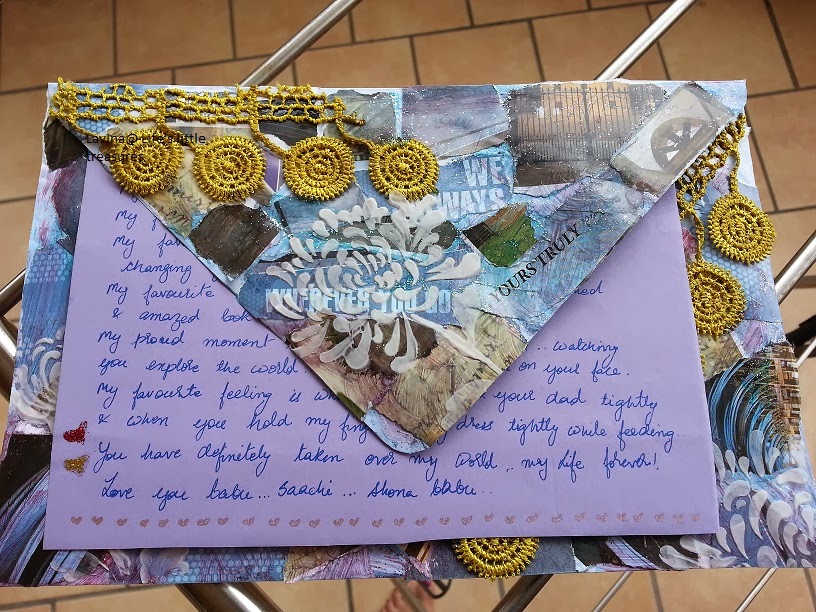 Lavina@ Lyf's little
treasures
WE
WAYS
YOURS TRULY
WHEREVER YOU GO
my f
my fav
changing
my favourite
& amazed look
my proud moment .. watching
you explore the world on your face.
my favourite feeling is your dad tightly
& when you hold my dress tightly while feeding
You have definitely taken over my world.. my life forever!
Love you babu... Saachi... Shona babu..